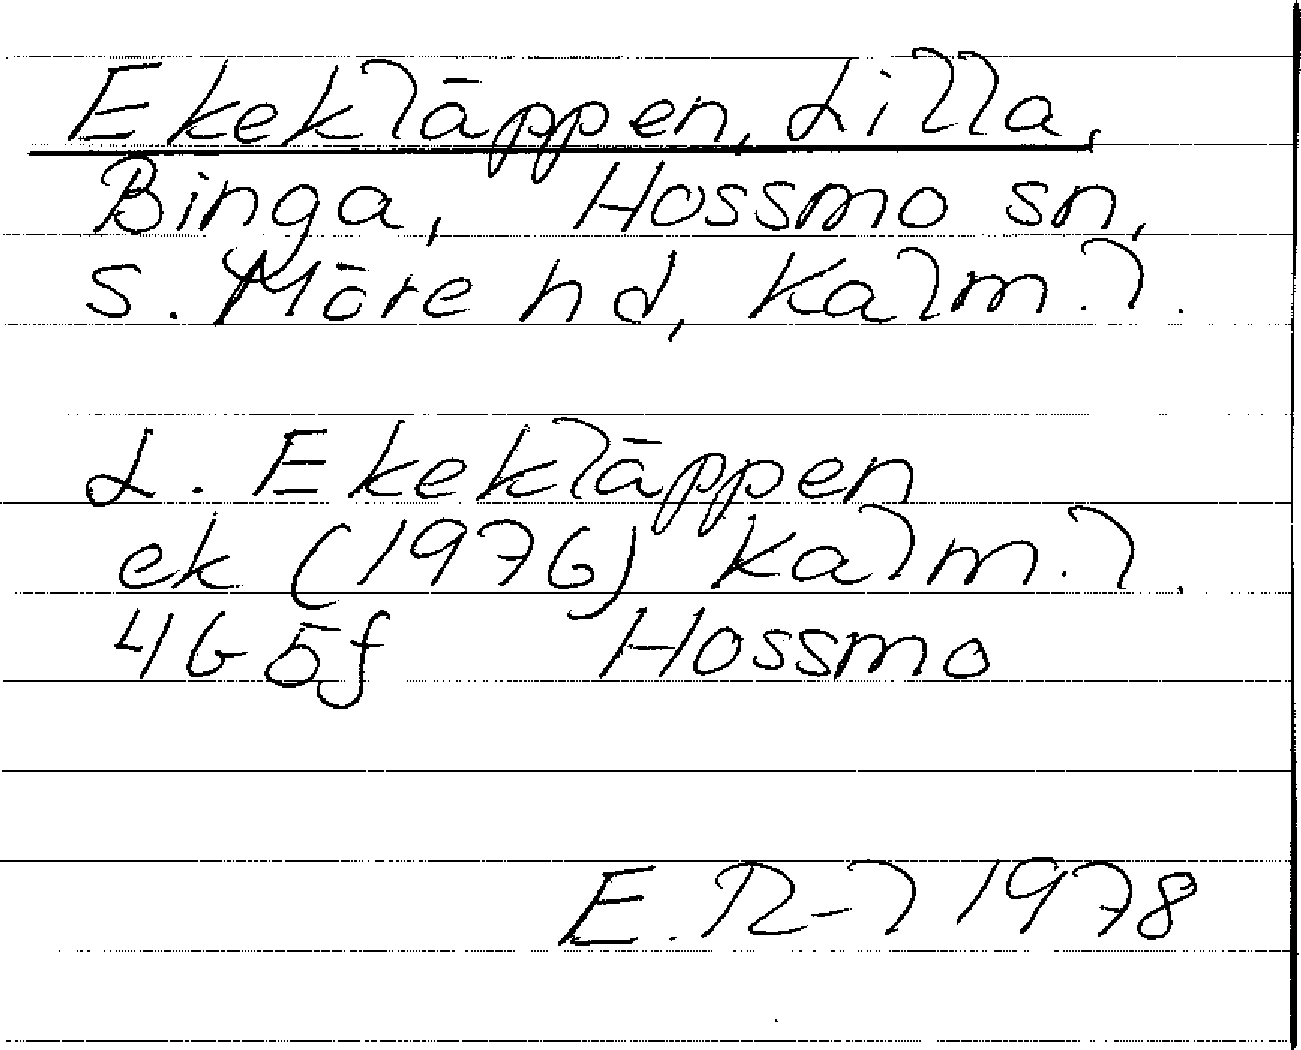 Ekekläppen, Lilla,
Binga, Hossmo sn,
S. Möre hd, Kalm. l.
L. Ekekläppen
ek (1976) Kalm. l.
4G 5f Hossmo
E. R-l 1978